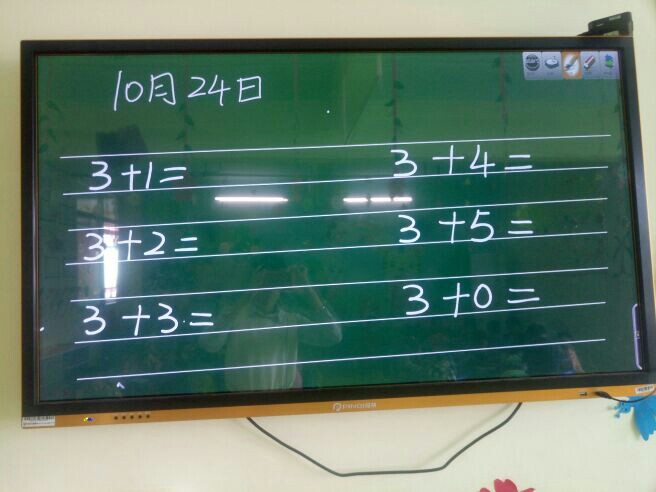 10月24日
3+1= 3+4=
3+2= 3+5=
3+3= 3+0=